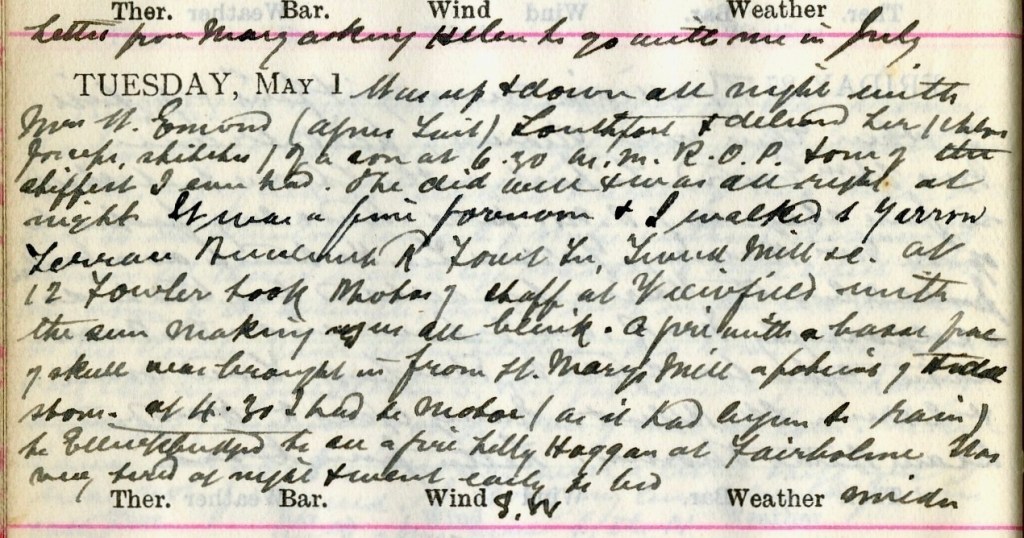 Ther. Bar. Wind Weather
Letter from Mary asking Helen to go with me in July
TUESDAY, MAY 1 Was up & down all night with
Mrs W. Emond ( ) & delivered her (chlor
Forceps, stitches) of a son at 6.30 a.m. R.O.P. & one of the
stiffest I ever had. She did well & was all right at
night. It was a fine forenoon & I walked to Yarrow
Terrace R Tweed Mill &c. at
12 Fowler took Photos of staff at Viewfield with
the sun making us all blink. A girl with a basal frac
of skull was brought in from St. Mary's Mill a
At 4.30 I had to Motor (as it had begun to rain)
to to see a girl Haggan at Fairholme Was
very tired at night & went early to bed
Ther. Bar. Wind S.W Weather